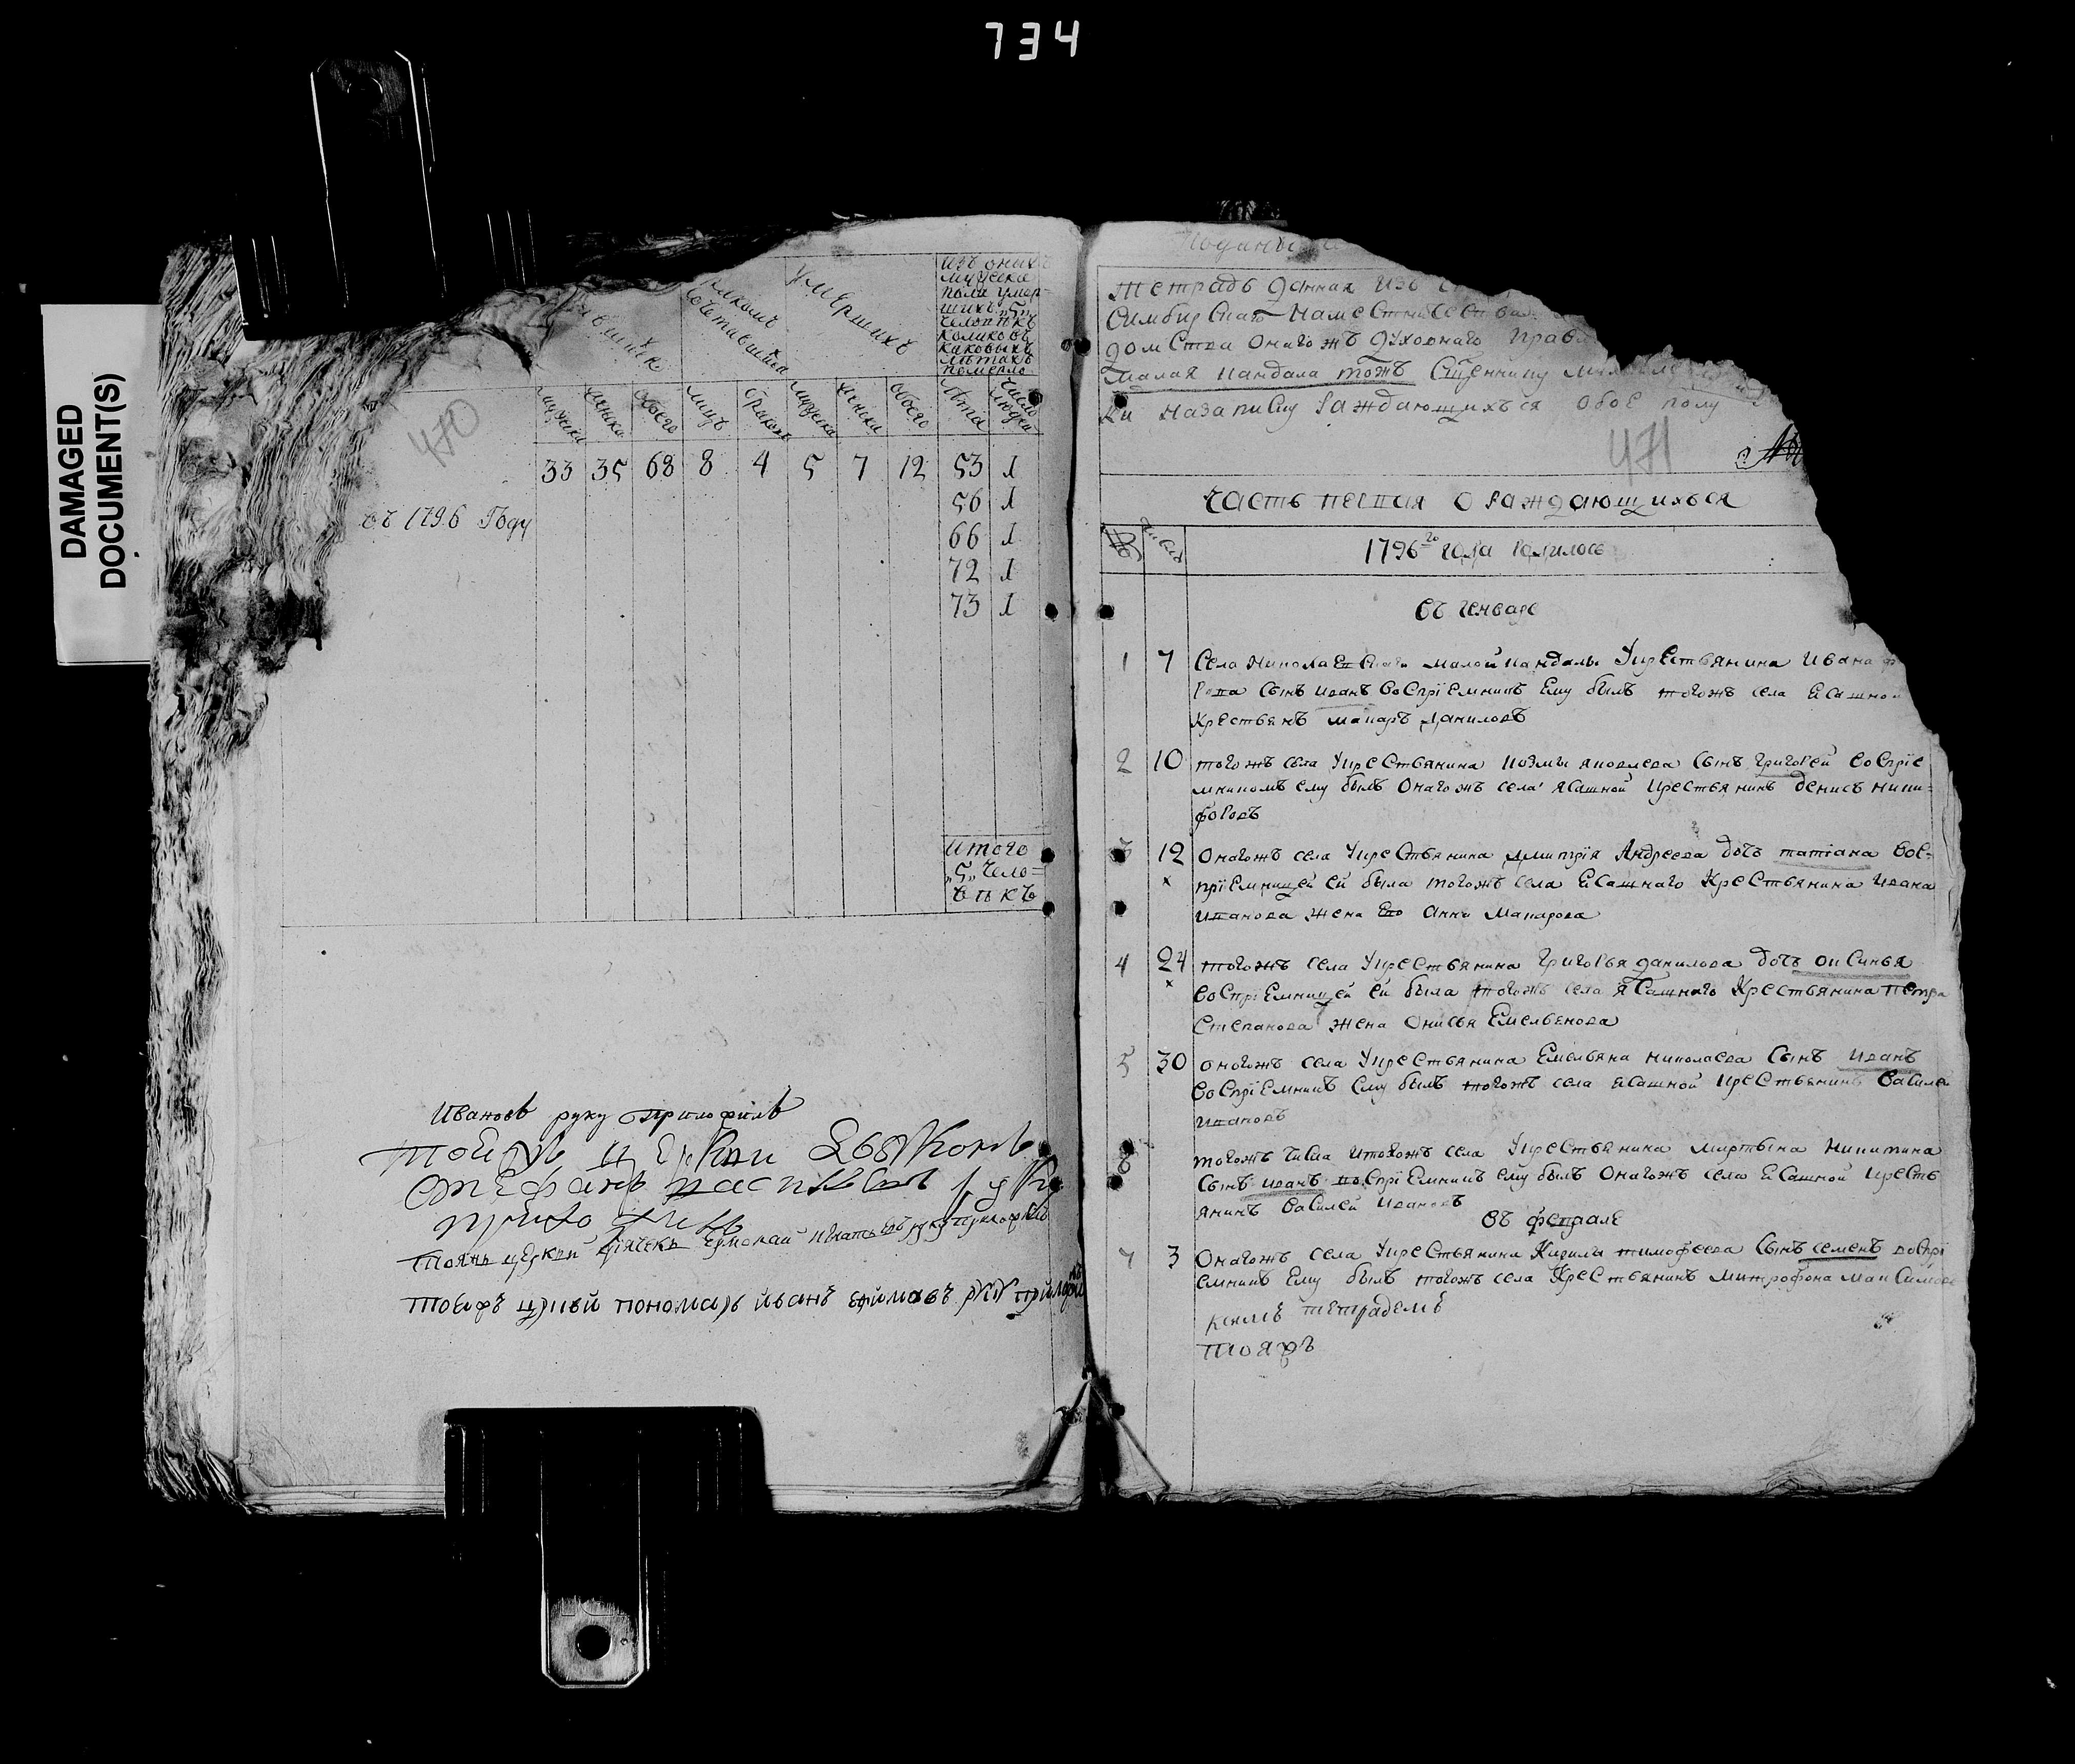 734
DAMAGED
DOCUMENT(S)
470
умершихъ
изъ оныхъ
мужеска
пола умер-
шихъ „5„
человѣкъ
коликовъ
каковыхъ
лѣтахъ
померло
мужска женска обоего лицъ браковъ мужска женска обоего лѣта число людей
33 35 68 8 4 5 7 12 53 1
56 1
въ 1796 Году
66 1
72 1
73 1
итого
„5„ чело=
вѣкъ
Ивановъ руку приложилъ
тоежъ церкви дьяконъ
Стефанъ руку
приложилъ
тояжъ церкви дьячекъ руку приложилъ
тоежъ црквй пономарь йванъ руку приложилъ
Тетрадь данная изъ
Симбирскаго Намѣстничества
домства онагожъ духовнаго правл
малая кандала тожъ Сщеннику
ки назапису раждающихъся обоего полу
471
Часть первая о раждающихъся
1796го года родилось
въ генваре
1 7 Села Николаевскаго малой кандалы Укрестьянина Ивана
рова сынъ иванъ воспріемникъ ему былъ тогожъ села ясашной
крестьянъ макаръ даниловъ
2 10 тогожъ села Укрестьянина козмы яковлева сынъ григорей воспріе
мникомъ ему былъ Онагожъ села ясашной крестьянинъ денисъ ники=
форовъ
3 12 Онагожъ села Укрестьянина дмитрія Андреева дочь татіана вос=
пріемницей ей была тогожъ села ясашнаго крестьянина ивана
иванова жена ево анна макарова
4 24 тогожъ села Укрестьянина григорья данилова дочь оксинья
воспріемницей ей была тогожъ села ясашнаго крестьянина петра
степанова жена онисья емельянова
5 30 оногожъ села Укрестьянина емельяна николаева сынъ иванъ
воспріемникъ ему былъ тогожъ села ясашной крестьянинъ василей
ивановъ
6 тогожъ числа итогожъ села Укрестьянина мартына никитина
сынъ иванъ воспріемникъ ему былъ онагожъ села ясашной кресть
янинъ василей ивановъ
въ феврале
7 3 Онагожъ села Укрестьянина кирилы тимофеева сынъ семенъ воспрі
емникъ ему былъ тогожъ села крестьянинъ митрофона максимова
къ симъ тетрадемъ
тояжъ